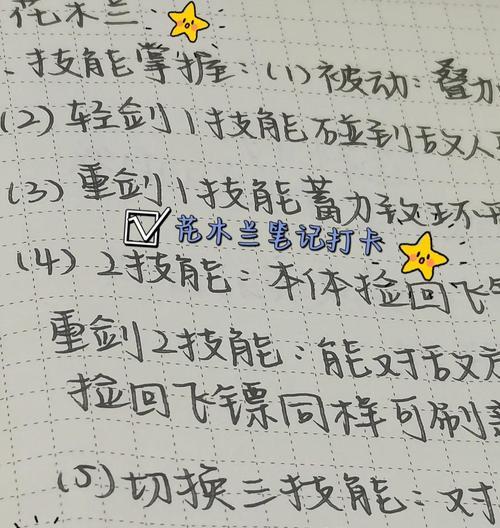 花木兰
、技能掌握：(1)被动：叠
(2)轻剑1技能碰到敌人
(3)重剑1技能蓄力
花木兰笔记打卡
(4)2技能：本体捡回飞
重剑2技能：能对敌方
捡回飞镖同样可刷
(5)切换三技能：对